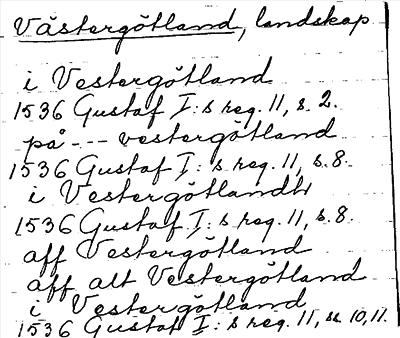 Västergötland, landskap
i Vestergötland
1536 Gustaf I:s reg. 11, s. 2.
på --- vestergötland
1536 Gustaf I:s reg. 11, s. 8.
i Vestergötlandh
1536 Gustaf I:s reg. 11, s. 8.
aff Vestergötland
aff alt Vestergötland
i Vestergötland
1536 Gustaf I:s reg. 11, ss. 10, 11.